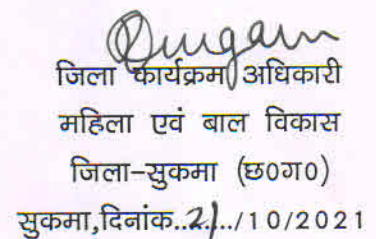 Durgam
जिला कार्यक्रम अधिकारी
महिला एवं बाल विकास
जिला-सुकमा (छ०ग०)
सुकमा,दिनांक..21../10/2021